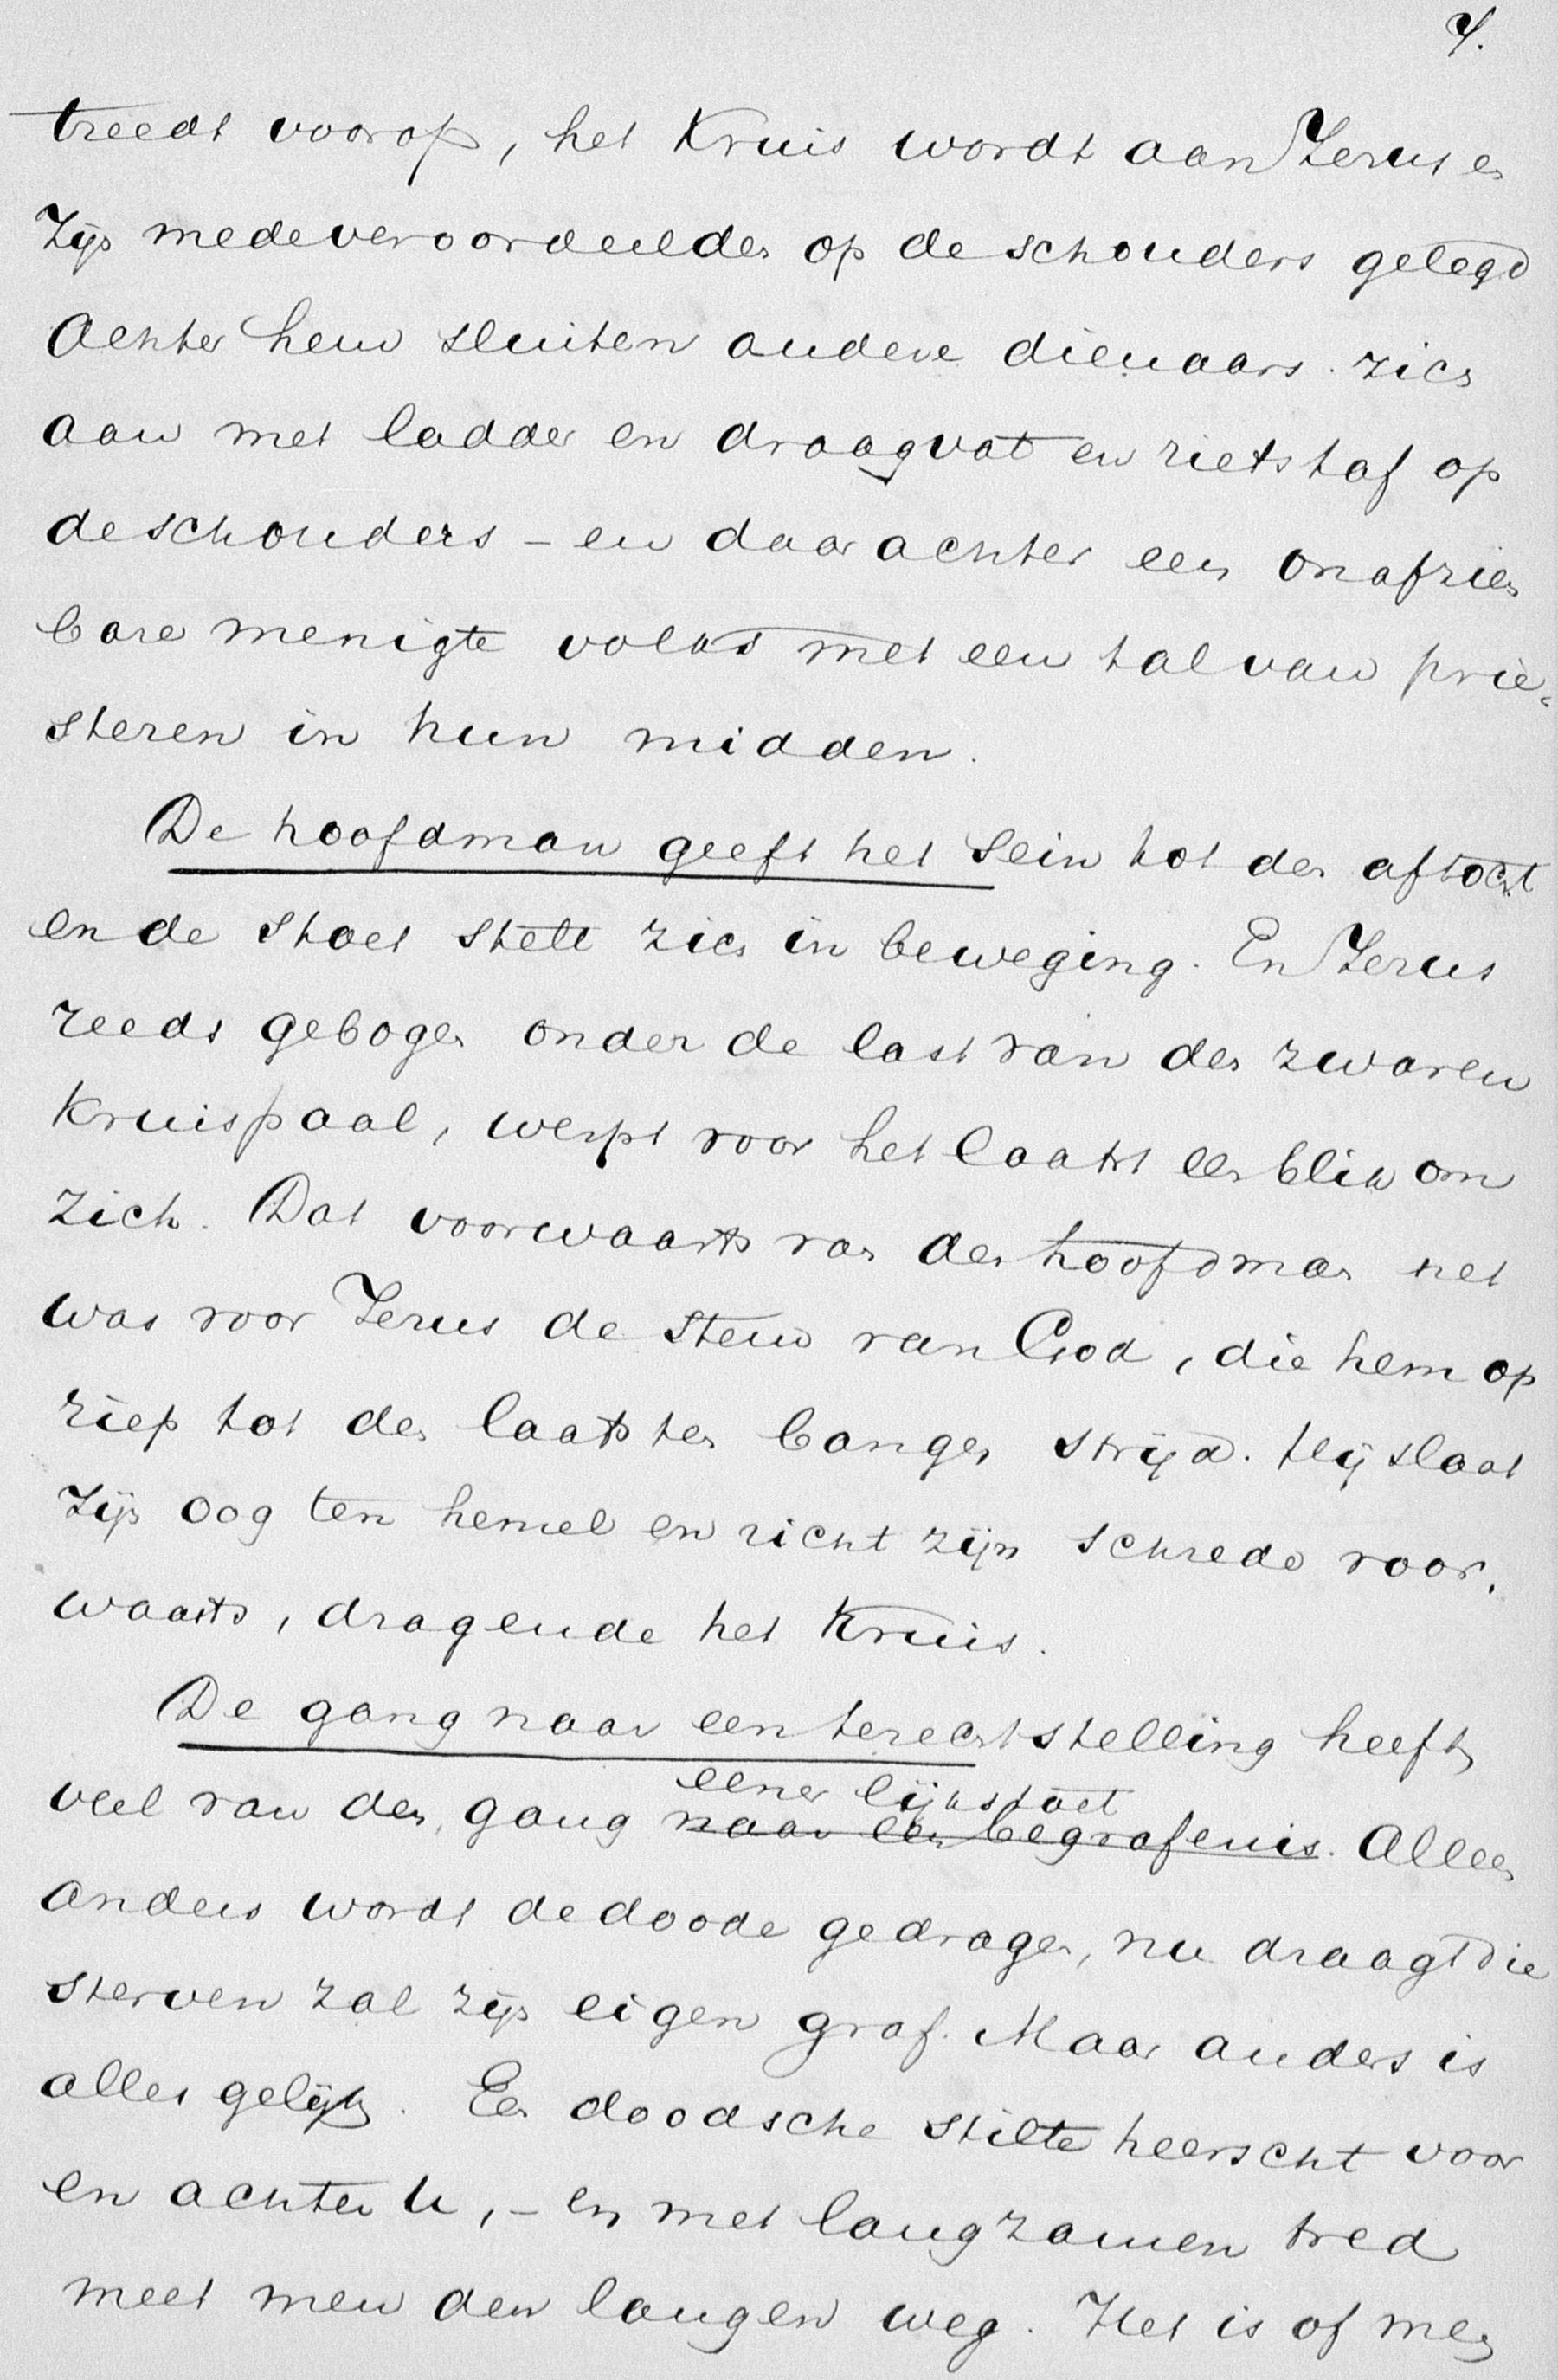 4.
treedt voorop, het Kruis wordt aan Jezus en
zijn medeveroordeelden op de schouders gelegd
Achter hem sluiten andere dienaars zich
aan met ladder en draagvat en rietstaf op
de schouders – en daarachter een onafzien
bare menigte volks met een tal van prie-
steren in hun midden.
De hoofdman geeft het sein tot den aftocht
en de stoet stelt zich in beweging. En Jezus
reeds gebogen onder de last van den zwaren
Kruispaal, werpt voor het laatst een blik om
zich. Dat voorwaarts van den hoofdman het
was voor Jezus de stem van God, die hem op
riep tot den laatsten bangen strijd. Hij slaat
zijn oog ten hemel en richt zijn schrede voor-
waarts, dragende het Kruis.
De gang naar een terechtstelling heeft
eener lijkstoet
veel van den gang naar een begrafenis. Alleen
anders wordt de doode gedragen, nu draagt die
sterven zal zijn eigen graf. Maar anders is
alles gelijk. Een doodsche stilte heerscht voor
en achter U, – en met langzamen tred
meet men den langen weg. Het is of men